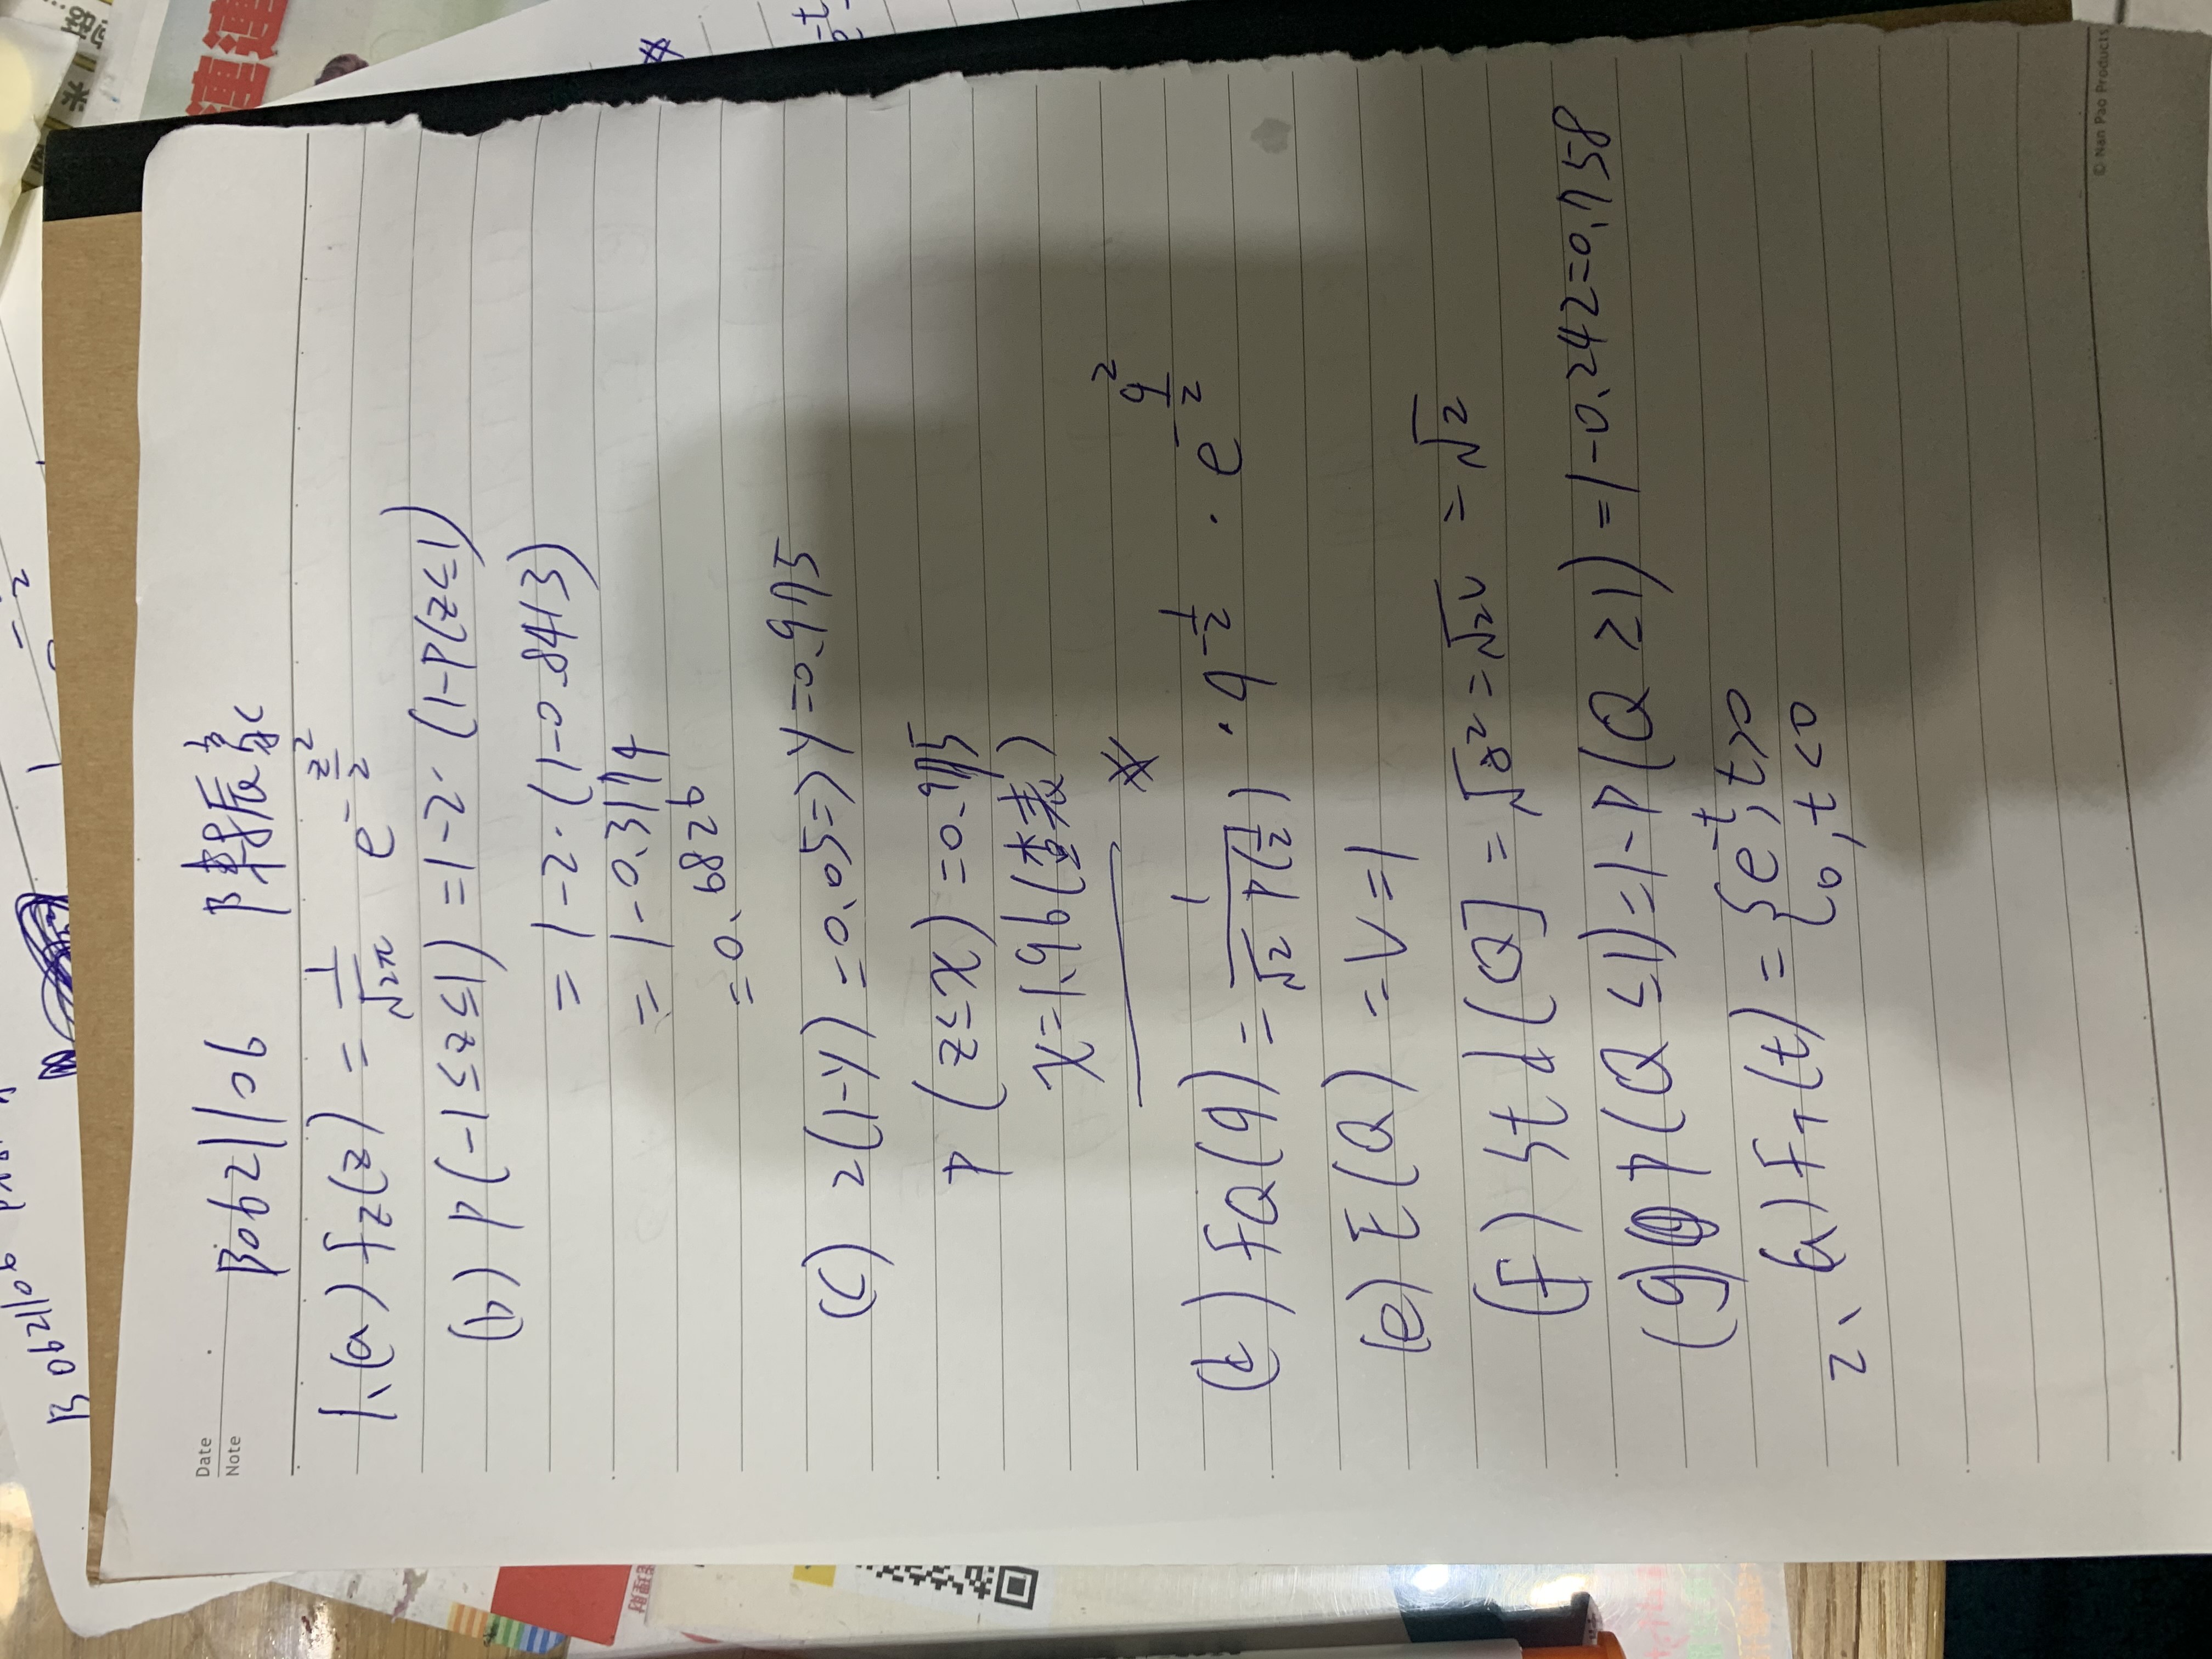 B0621106
Date
Note
B0621106 陳振豪
1、(a) fz(z) = 1/√2π e^-z²/2
(b) P(-1≤z≤1) = 1-2·(1-P(z≤1)
= 1-2·(1-0.8413)
= 1-0.3174
= 0.6826
(c) 2(1-y) = 0.05 => y = 0.975
P(z≤x) = 0.975
x = 1.96 (查表)
(d) fQ(q) = 1/√2 P(1/2) · q^-1/2 · e^-q²/2
(e) E(Q) = V = 1
(f) Std[Q] = √σ² = √2V = √2
(g) P(Q≤1) = 1-P(Q≥1) = 1-0.242 = 0.758
2、(a) FT(t) = { e^-t, t>0
0, t<0
© Nan Pao Products
連連